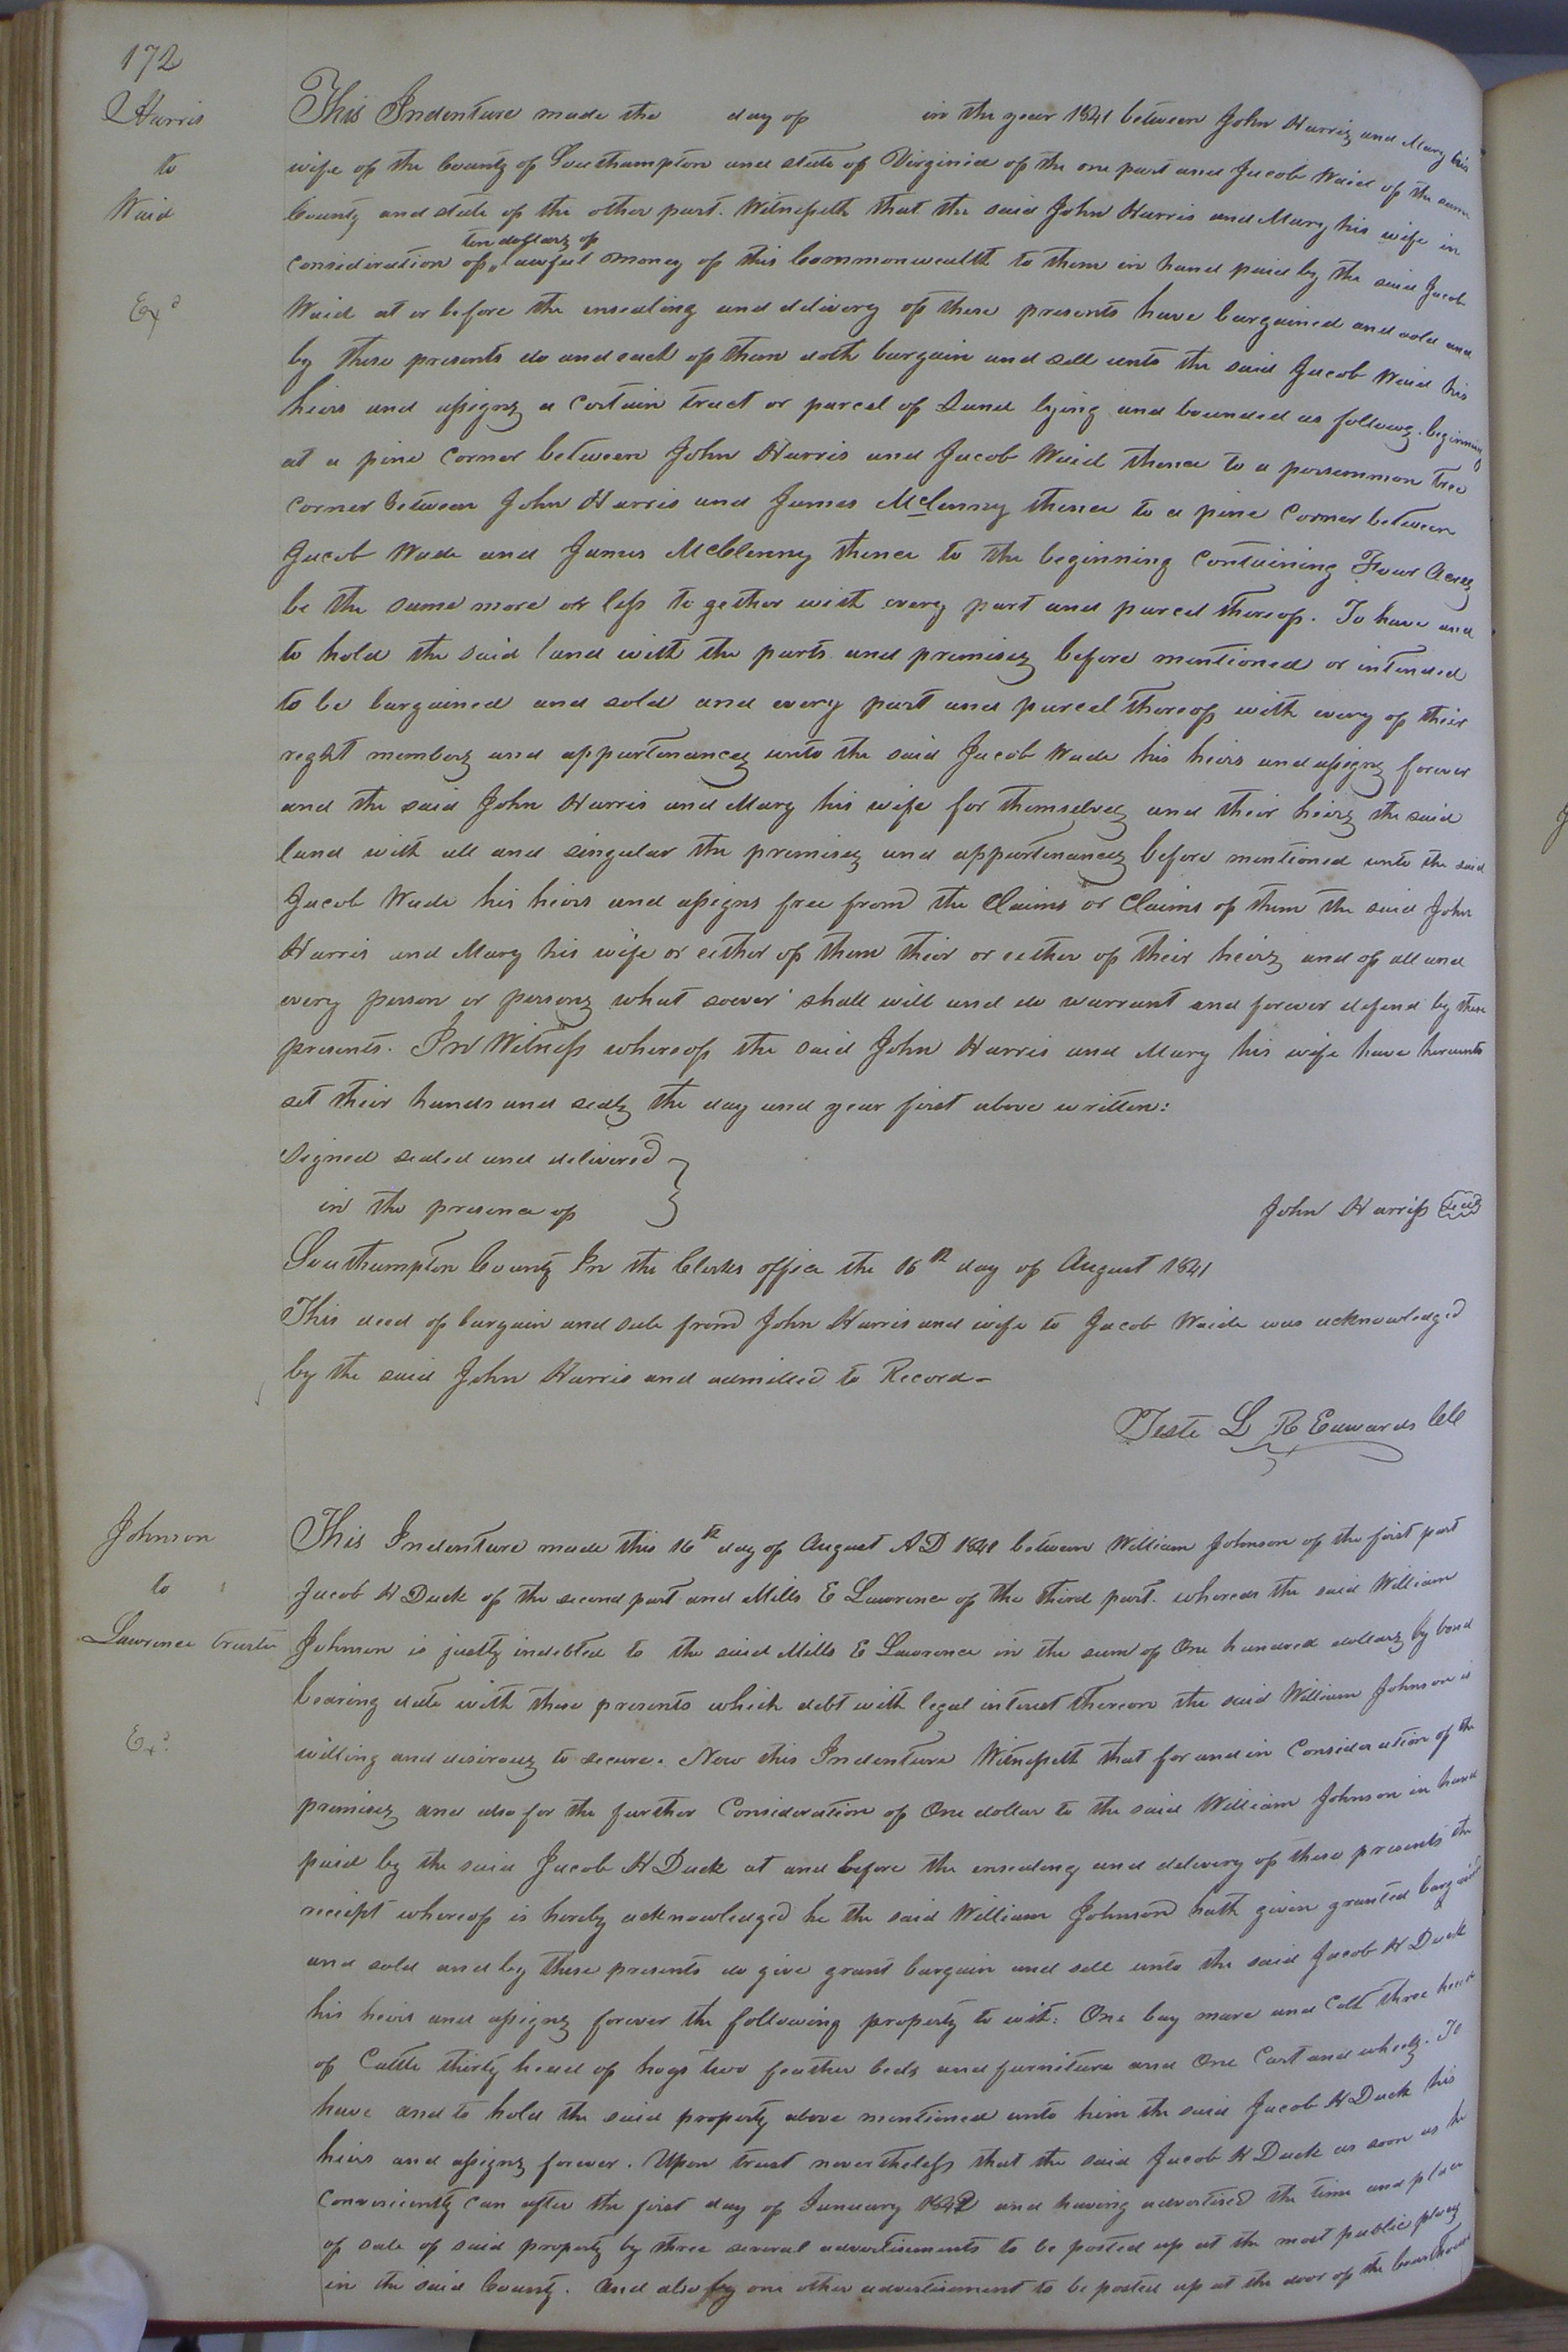 172
Harris
to
Waid
Exd
This Indenture made the day of in the year 1841 between John Harris and Mary his
wife of the County of Southampton and state of Virginia of the one part and Jacob Waid of the same
County and state of the other part. Witnesseth that the said John Harris and Mary his wife in
ten dollars of
consideration of lawful money of this Commonwealth to them in hand paid by the said Jacob
Waid at or before the ensealing and delivery of these presents have bargained and sold and
by these presents do and each of them doth bargain and sell unto the said Jacob Waid his
heirs and assigns a certain tract or parcel of Land lying and bounded as follows. beginning
at a pine corner between John Harris and Jacob Waid thence to a persemmon tree
corner between John Harris and James McClenny thence to a pine Corner between
Jacob Wade and James McClenny thence to the beginning Containing Four Acres
be the same more or less to gether with every part and parcel thereof. To have and
to hold the said land with the parts and premises before mentioned or intended
to be bargained and sold and every part and parcel thereof with every of their
reght members and appurtenances unto the said Jacob Wade his heirs and assigns forever
and the said John Harris and Mary his wife for themselves and their heirs the said
land with all and singular the premises and appurtenances before mentioned unto the said
Jacob Wade his heirs and assigns free from the Claims or Claims of them the said John
Harris and Mary his wife or either of them their or either of their heirs and of all and
every person or persons what soever shall will and do warrant and forever defend by these
presents. In Witness whereof the said John Harris and Mary his wife have hereunto
set their hands and seals the day and year first above written:
Signed sealed and delivered
in the presence of
John Harriss Seal
Southampton County In the Clerks office the 16th day of August 1841
This deed of bargain and sale from John Harris and wife to Jacob Waide was acknowledged
by the said John Harris and admitted to Record-
Teste L R Edwards CC
Johnson
to
Lawrence trustee
Exd.
This Indenture made this 16th day of August AD 1841 between William Johnson of the first part
Jacob H Duck of the second part and Mills E Lawrence of the third part. whereas the said William
Johnson is justly indebted to the said Mills E Lawrence in the sum of One hundred dollars by bond
bearing date with these presents which debt with legal interest thereon the said William Johnson is
willing and desirous to secure. Now this Indenture Witnesseth that for and in Consideration of the
premises and also for the further Consideration of One dollar to the said William Johnson in hand
paid by the said Jacob H Duck at and before the ensealing and delivery of these presents the
receipt whereof is hereby acknowledged he the said William Johnson hath given granted bargained
and sold and by these presents do give grant bargain and sell unto the said Jacob H Duck
his heirs and assigns forever the following property to wit: One bay mare and Colt three head
of Cattle thirty head of hogs two feather beds and furniture and One Cart and wheels. To
have and to hold the said property above mentioned unto him the said Jacob H Duck his
heirs and assigns forever. Upon trust nevertheless that the said Jacob H Duck as soon as he
conveniently can after the first day of January 1842 and having advertised the time and place
of sale of said property by three several advertisements to be posted up at the most public places
in the said County. And also by one other advertisement to be posted up at the door of the Courthouse